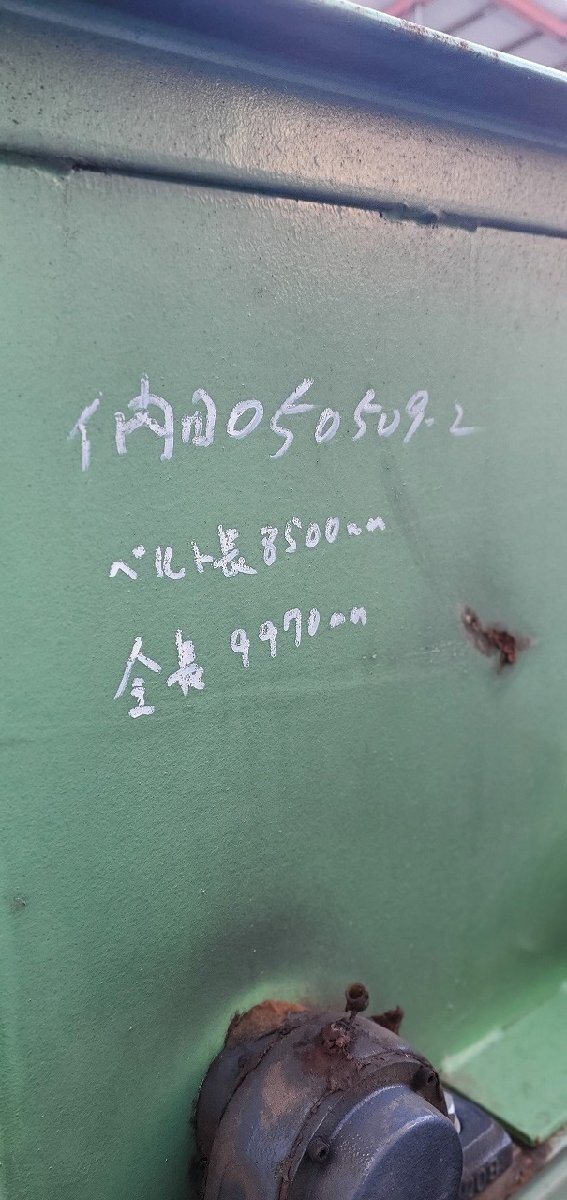 イ内田050509-2
ベルト長8500mm
全長9970mm